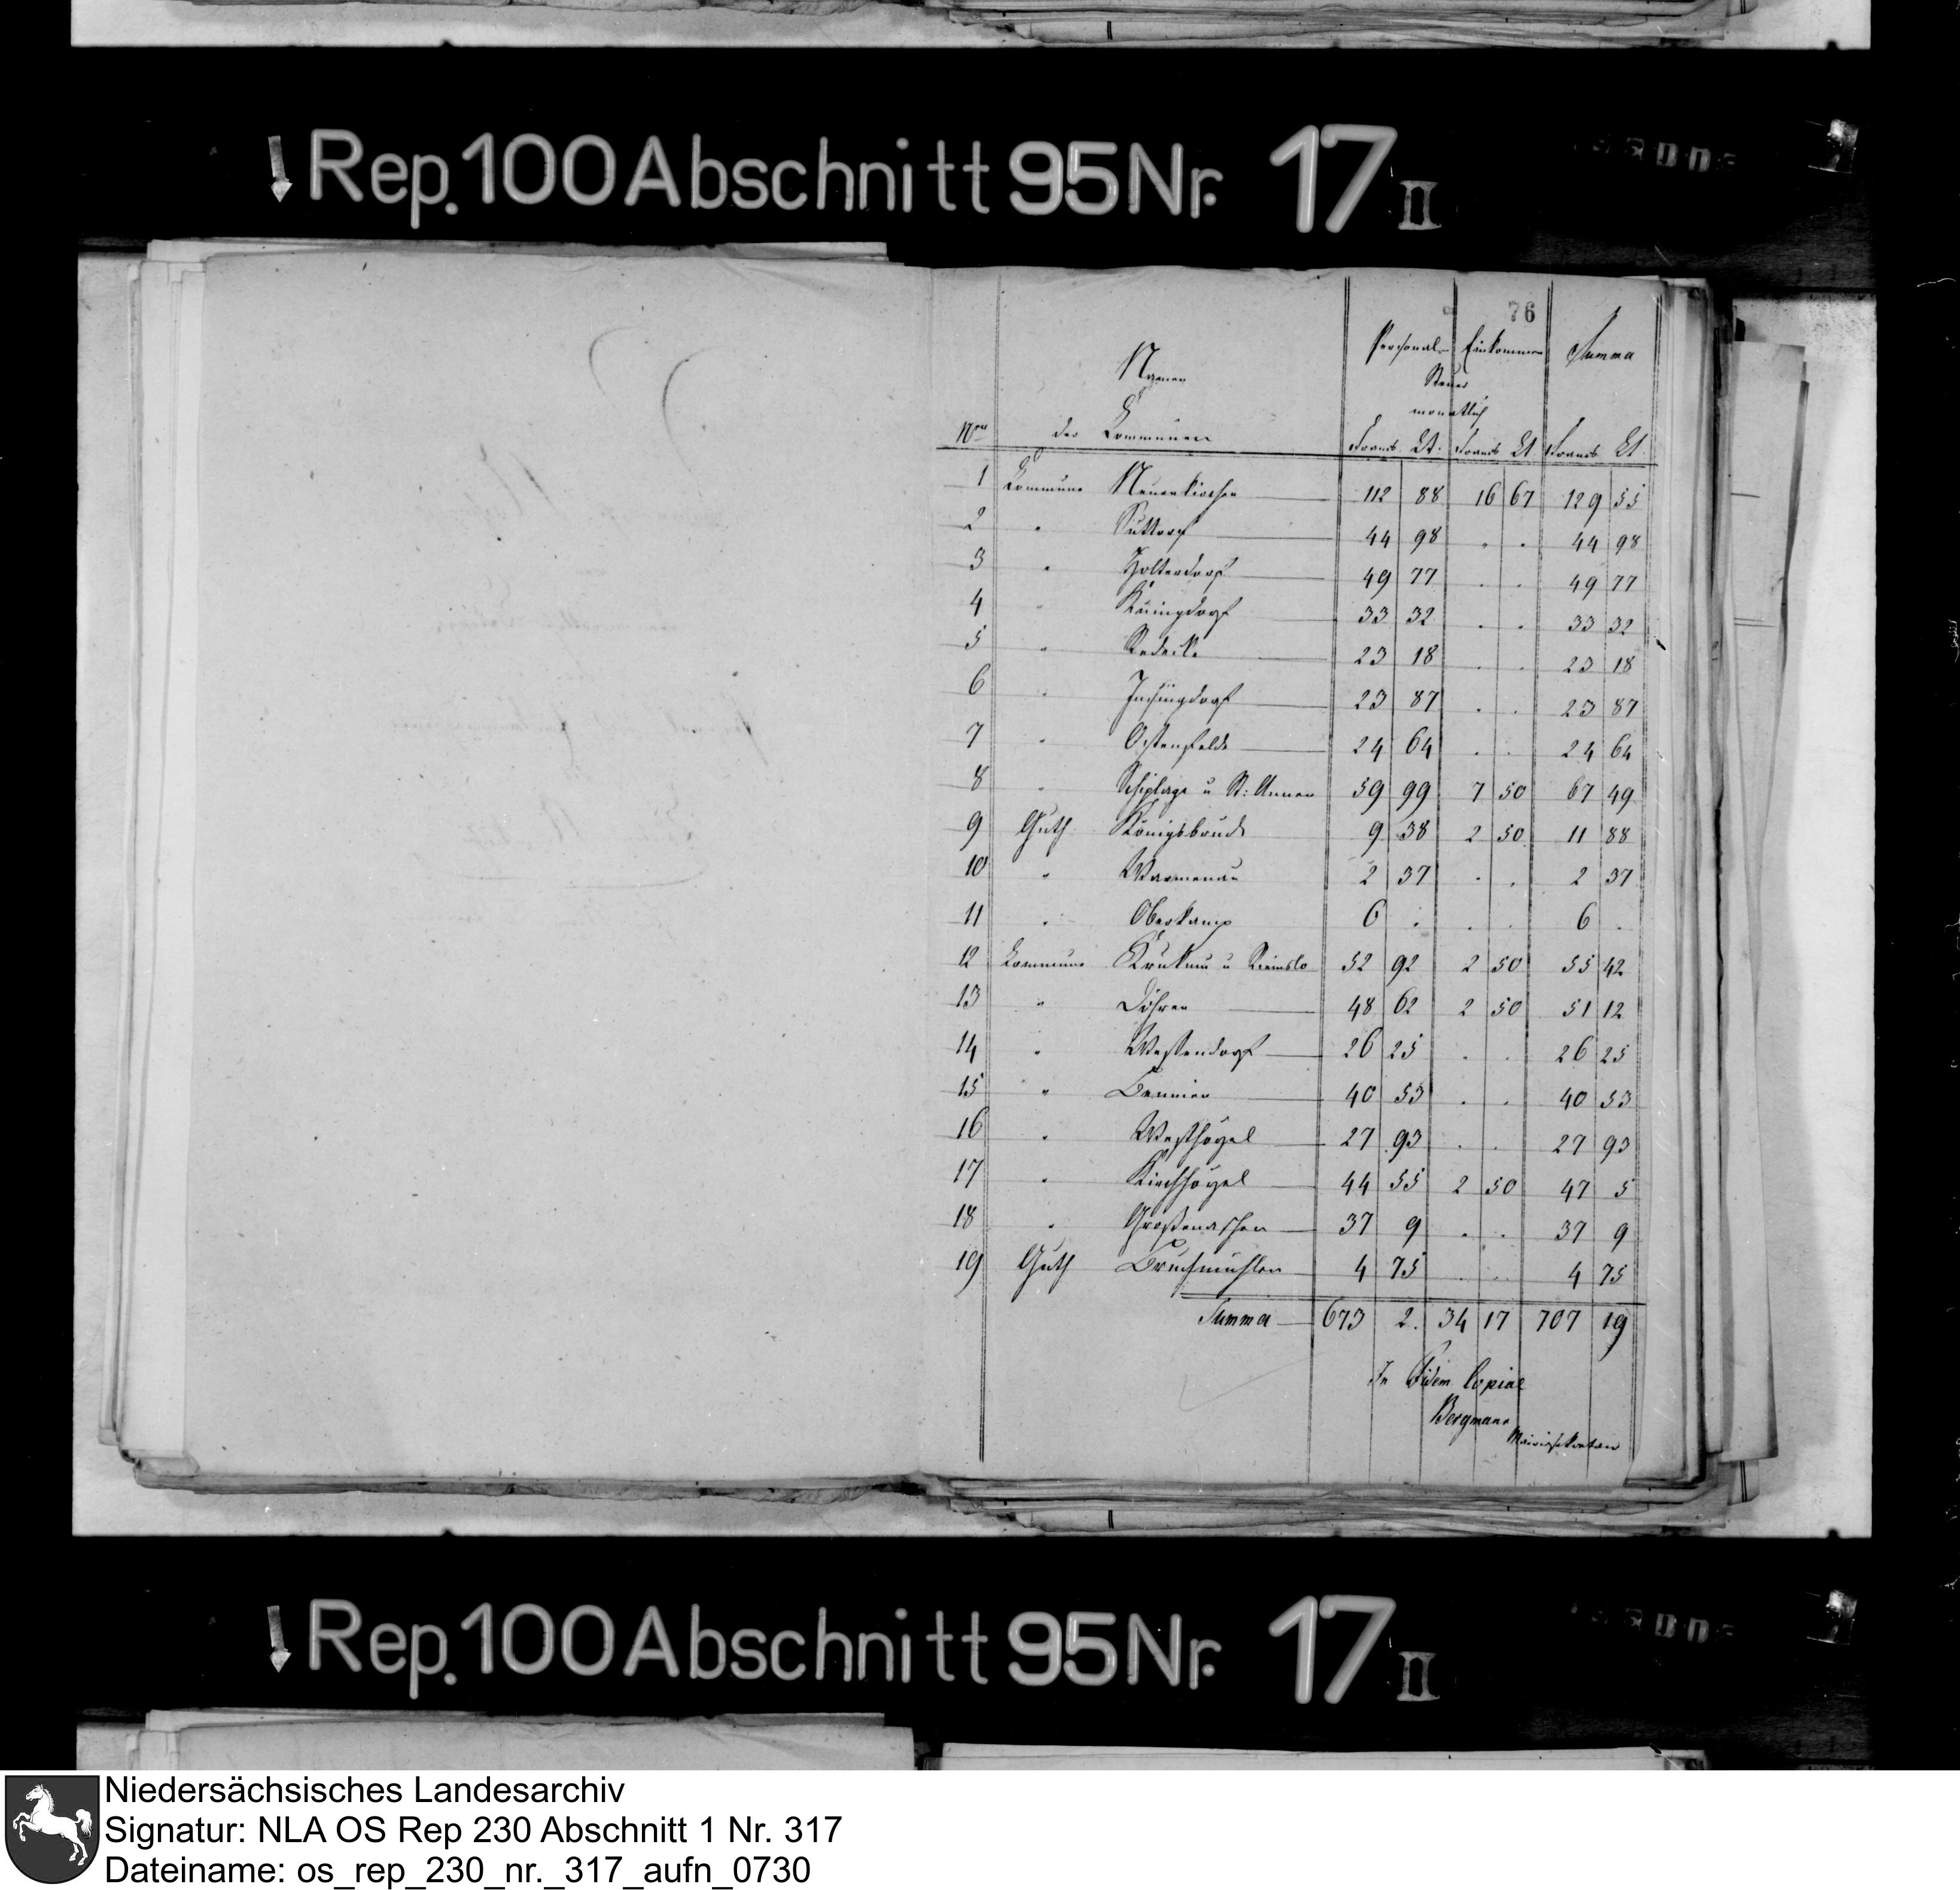 Rep. 100 Abschnitt 95 Nr. 17 II
76
Namen der Communen
Personal- Einkommen Summa
Steuer
monatlich
Nro der Communen Francs Ct. Francs Ct Francs Ct.
1 Commune Neuenkirchen 112 88 16 67 129 55
2 " Suttorf 44 98 " " 44 98
3 " Holterdorf 49 77 . . 49 77
4 " Küingdorf 33 32 . . 33 32
5 " Redecke 23 18 . . 23 18
6 " Insingdorf 23 87 . . 23 87
7 " Ostenfelde 24 64 . . 24 64
8 " Schiplage u St: Annen 59 99 7 50 67 49
9 Guth Königsbrück 9 38 2 50 11 88
10 " Warmenau 2 37 . . 2 37
11 " Oberkamp 6 . . . 6 .
12 Commune Krukum u Riemslo 52 92 2 50 55 42
13 " Döhren 48 62 2 50 51 12
14 " Westendorf 26 25 . . 26 25
15 " Bennien 40 53 . . 40 53
16 " Westhoyel 27 93 . . 27 93
17 " Kirchhoyel 44 55 2 50 47 5
18 " Großenaschen 37 9 . . 37 9
19 Guth Bruchmühlen 4 75 . . 4 75
Summa 673 2. 34 17 707 19
In Fidem Copiae
Bergmann
Mairiesekretair
Rep. 100 Abschnitt 95 Nr. 17 II
Niedersächsisches Landesarchiv
Signatur: NLA OS Rep 230 Abschnitt 1 Nr. 317
Dateiname: os_rep_230_nr._317_aufn_0730